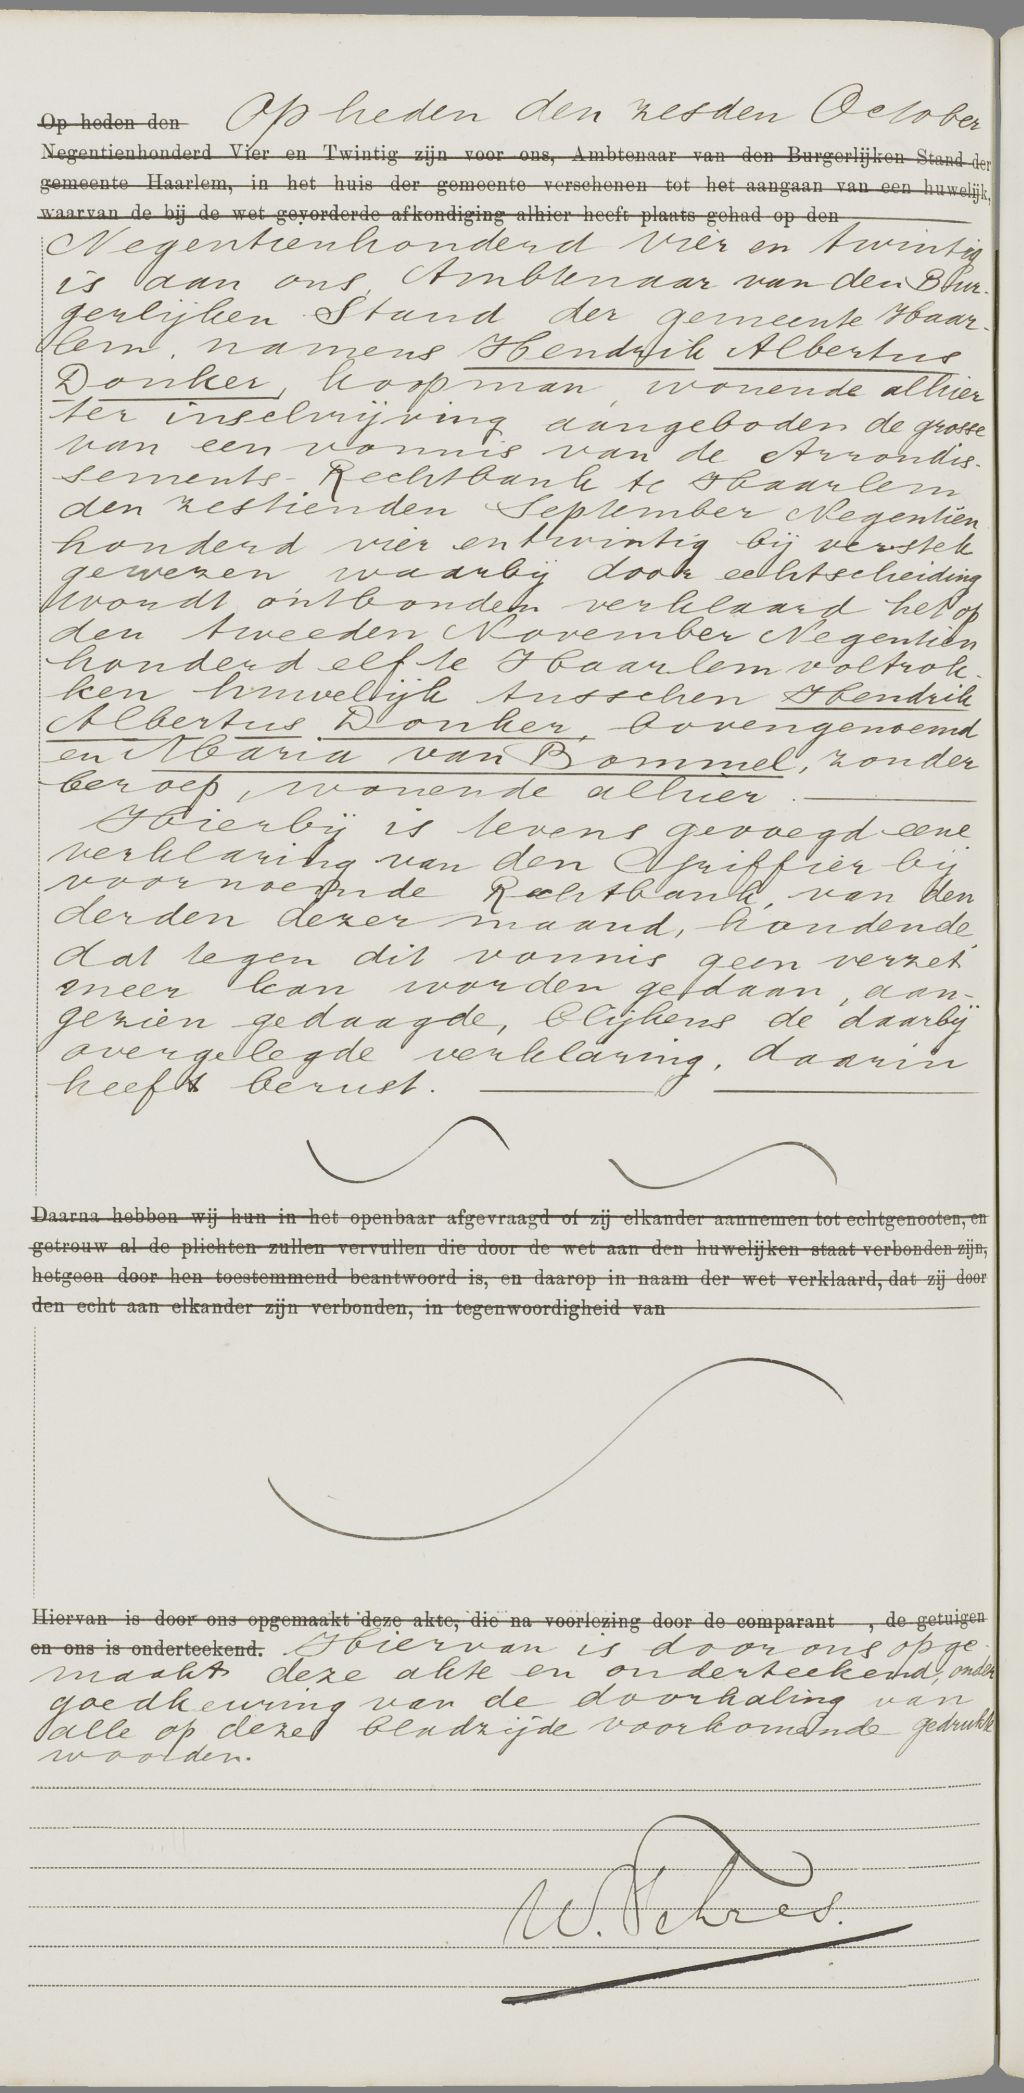 Op heden den Op heden den zesden October
Negentienhonderd Vier en Twintig zijn voor ons, Ambtenaar van den Burgerlijken Stand der
gemeente Haarlem, in het huis der gemeente verschenen tot het aangaan van een huwelijk,
waarvan de bij de wet gevorderde afkondiging alhier heeft plaats gehad op den
Negentienhonderd vier en twintig
is aan ons, Ambtenaar van den Bur-
gerlijken Stand der gemeente Haar-
lem, namens Hendrik Albertus
Donker, koopman, wonende alhier
ter inschrijving aangeboden de grosse
van een vonnis van de Arrondis-
sements-Rechtbank te Haarlem
den zestienden September Negentien
honderd vier en twintig bij verstek
gewezen waarbij door echtscheiding
wordt ontbonden verklaard het op
den tweeden November Negentien
honderd elf te Haarlem voltrok-
ken huwelijk tusschen Hendrik
Albertus Donker, bovengenoemd
en Maria van Bommel, zonder
beroep, wonende alhier.
Hierbij is tevens gevoegd eene
verklaring van den Griffier bij
voornoemde Rechtbank, van den
derden dezer maand, houdende,
dat tegen dit vonnis geen verzet
meer kan worden gedaan, aan-
gezien gedaagde, blijkens de daarbij
overgelegde verklaring, daarin
heeft berust.
Daarna hebben wij hun in het openbaar afgevraagd of zij elkander aannemen tot echtgenooten, en
getrouw al de plichten zullen vervullen die door de wet aan den huwelijken staat verbonden zijn,
hetgeen door hen toestemmend beantwoord is, en daarop in naam der wet verklaard, dat zij door
den echt aan elkander zijn verbonden, in tegenwoordigheid van
Hiervan is door ons opgemaakt deze akte, die na voorlezing door de comparant , de getuigen
en ons is onderteekend. Hiervan is door ons opge-
maakt deze akte en onderteekend, onder
goedkeuring van de doorhaling van
alle op deze bladzijde voorkomende gedrukte
woorden.